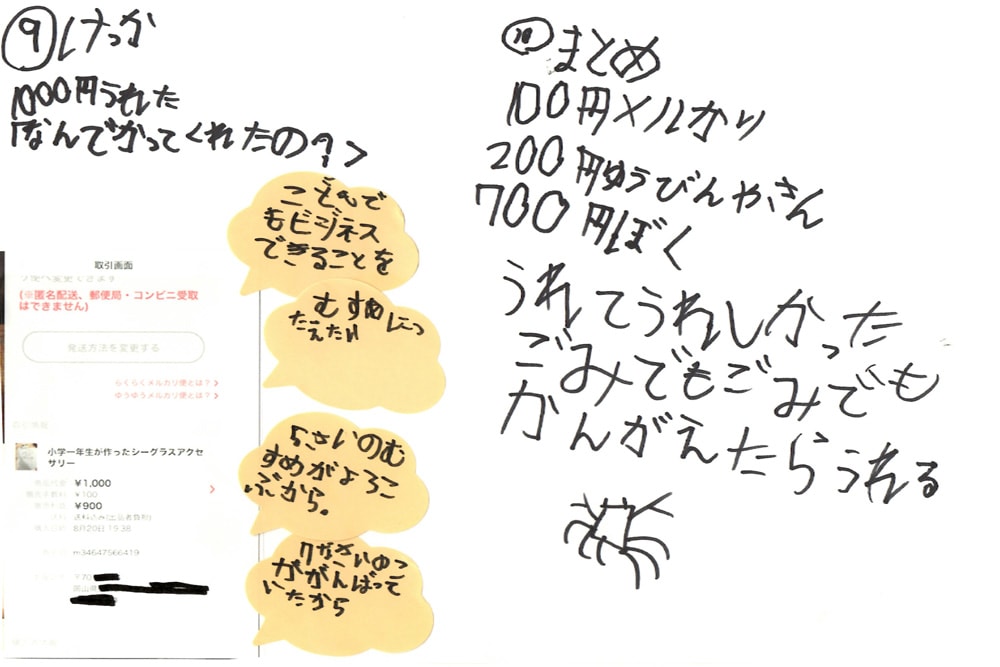 ⑨けっか
1000円うれた
「なんでかってくれたの?>
こどもで
もビジネス
できることを
むすめにつ
たえたい
5さいのむ
すめがよろこ
ぶから。
ががんばって
いたから
取引画面
(※匿名配送、郵便局・コンビニ受取
はできません)
発送方法を変更する
らくらくメルカリ便とは?
ゆうゆうメルカリ便とは?
小学一年生が作ったシーグラスアクセ
サリー
¥1,000
¥100
¥900
送料込み(出品者負担)
8月20日 19:38
m34647566419
⑩まとめ
100円メルカリ
200円ゆうびんやさん
700円ぼく
うれてうれしかった
ごみでもごみでも
かんがえたらうれる